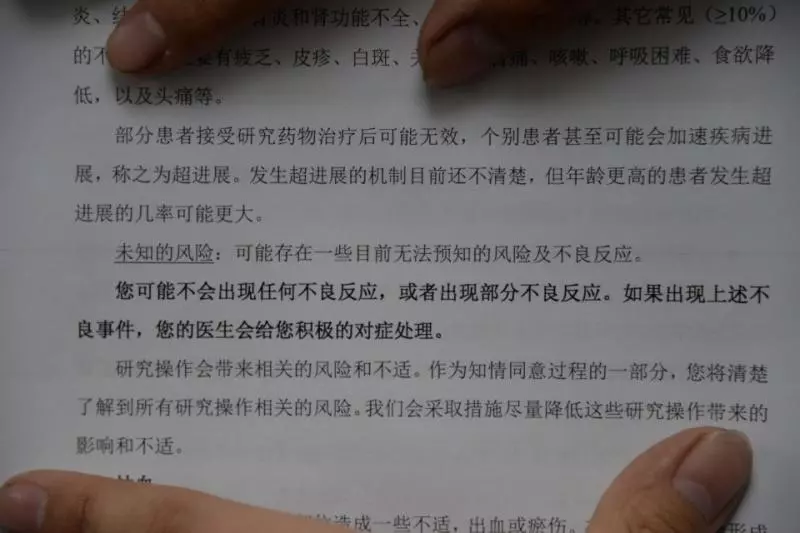 炎、结 炎和肾功能不全、 其它常见（≥10%）
的不 有疲乏、皮疹、白斑、 咳嗽、呼吸困难、食欲降
低，以及头痛等。
部分患者接受研究药物治疗后可能无效，个别患者甚至可能会加速疾病进
展，称之为超进展。发生超进展的机制目前还不清楚，但年龄更高的患者发生超
进展的几率可能更大。
未知的风险：可能存在一些目前无法预知的风险及不良反应。
您可能不会出现任何不良反应，或者出现部分不良反应。如果出现上述不
良事件，您的医生会给您积极的对症处理。
研究操作会带来相关的风险和不适。作为知情同意过程的一部分，您将清楚
了解到所有研究操作相关的风险。我们会采取措施尽量降低这些研究操作带来的
影响和不适。
造成一些不适，出血或瘀伤。 形成